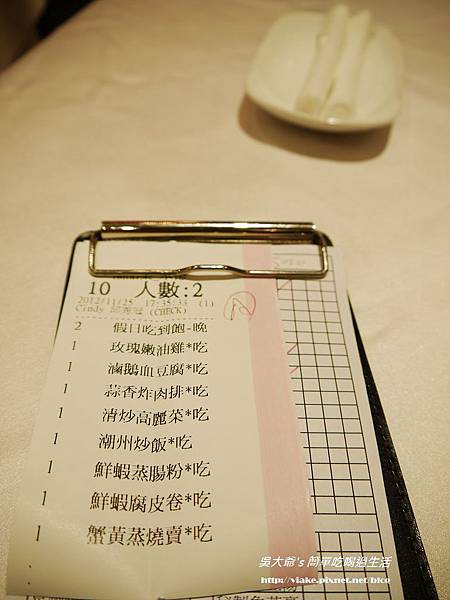 10 人數:2
2012/11/25 17:35:33 (1)
Cindy (CHECK)
2 假日吃到飽-晚
1 玫瑰嫩油雞*吃
1 滷鵝血豆腐*吃
1 蒜香炸肉排*吃
1 清炒高麗菜*吃
1 潮州炒飯*吃
1 鮮蝦蒸腸粉*吃
1 鮮蝦腐皮卷*吃
1 蟹黃蒸燒賣*吃
吳大爺's 簡單吃喝過生活
http://viake.pixnet.net/blog